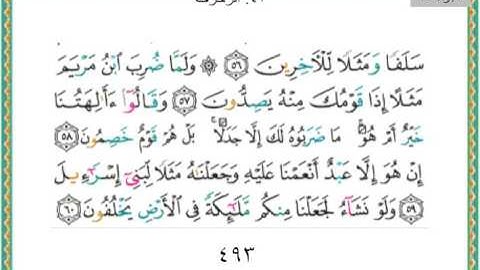 ٤٣. الزخرف
سَلَفًا وَمَثَلًا لِّلْآخِرِينَ ﴿٥٦﴾ ۞ وَلَمَّا ضُرِبَ ابْنُ مَرْيَمَ
مَثَلًا إِذَا قَوْمُكَ مِنْهُ يَصِدُّونَ ﴿٥٧﴾ وَقَالُوا أَآلِهَتُنَا
خَيْرٌ أَمْ هُوَ ۚ مَا ضَرَبُوهُ لَكَ إِلَّا جَدَلًا ۚ بَلْ هُمْ قَوْمٌ خَصِمُونَ ﴿٥٨﴾
إِنْ هُوَ إِلَّا عَبْدٌ أَنْعَمْنَا عَلَيْهِ وَجَعَلْنَٰهُ مَثَلًا لِّبَنِىٓ إِسْرَٰٓءِيلَ
﴿٥٩﴾ وَلَوْ نَشَآءُ لَجَعَلْنَا مِنكُم مَّلَٰٓئِكَةً فِى الْأَرْضِ يَخْلُفُونَ ﴿٦٠﴾
٤٩٣